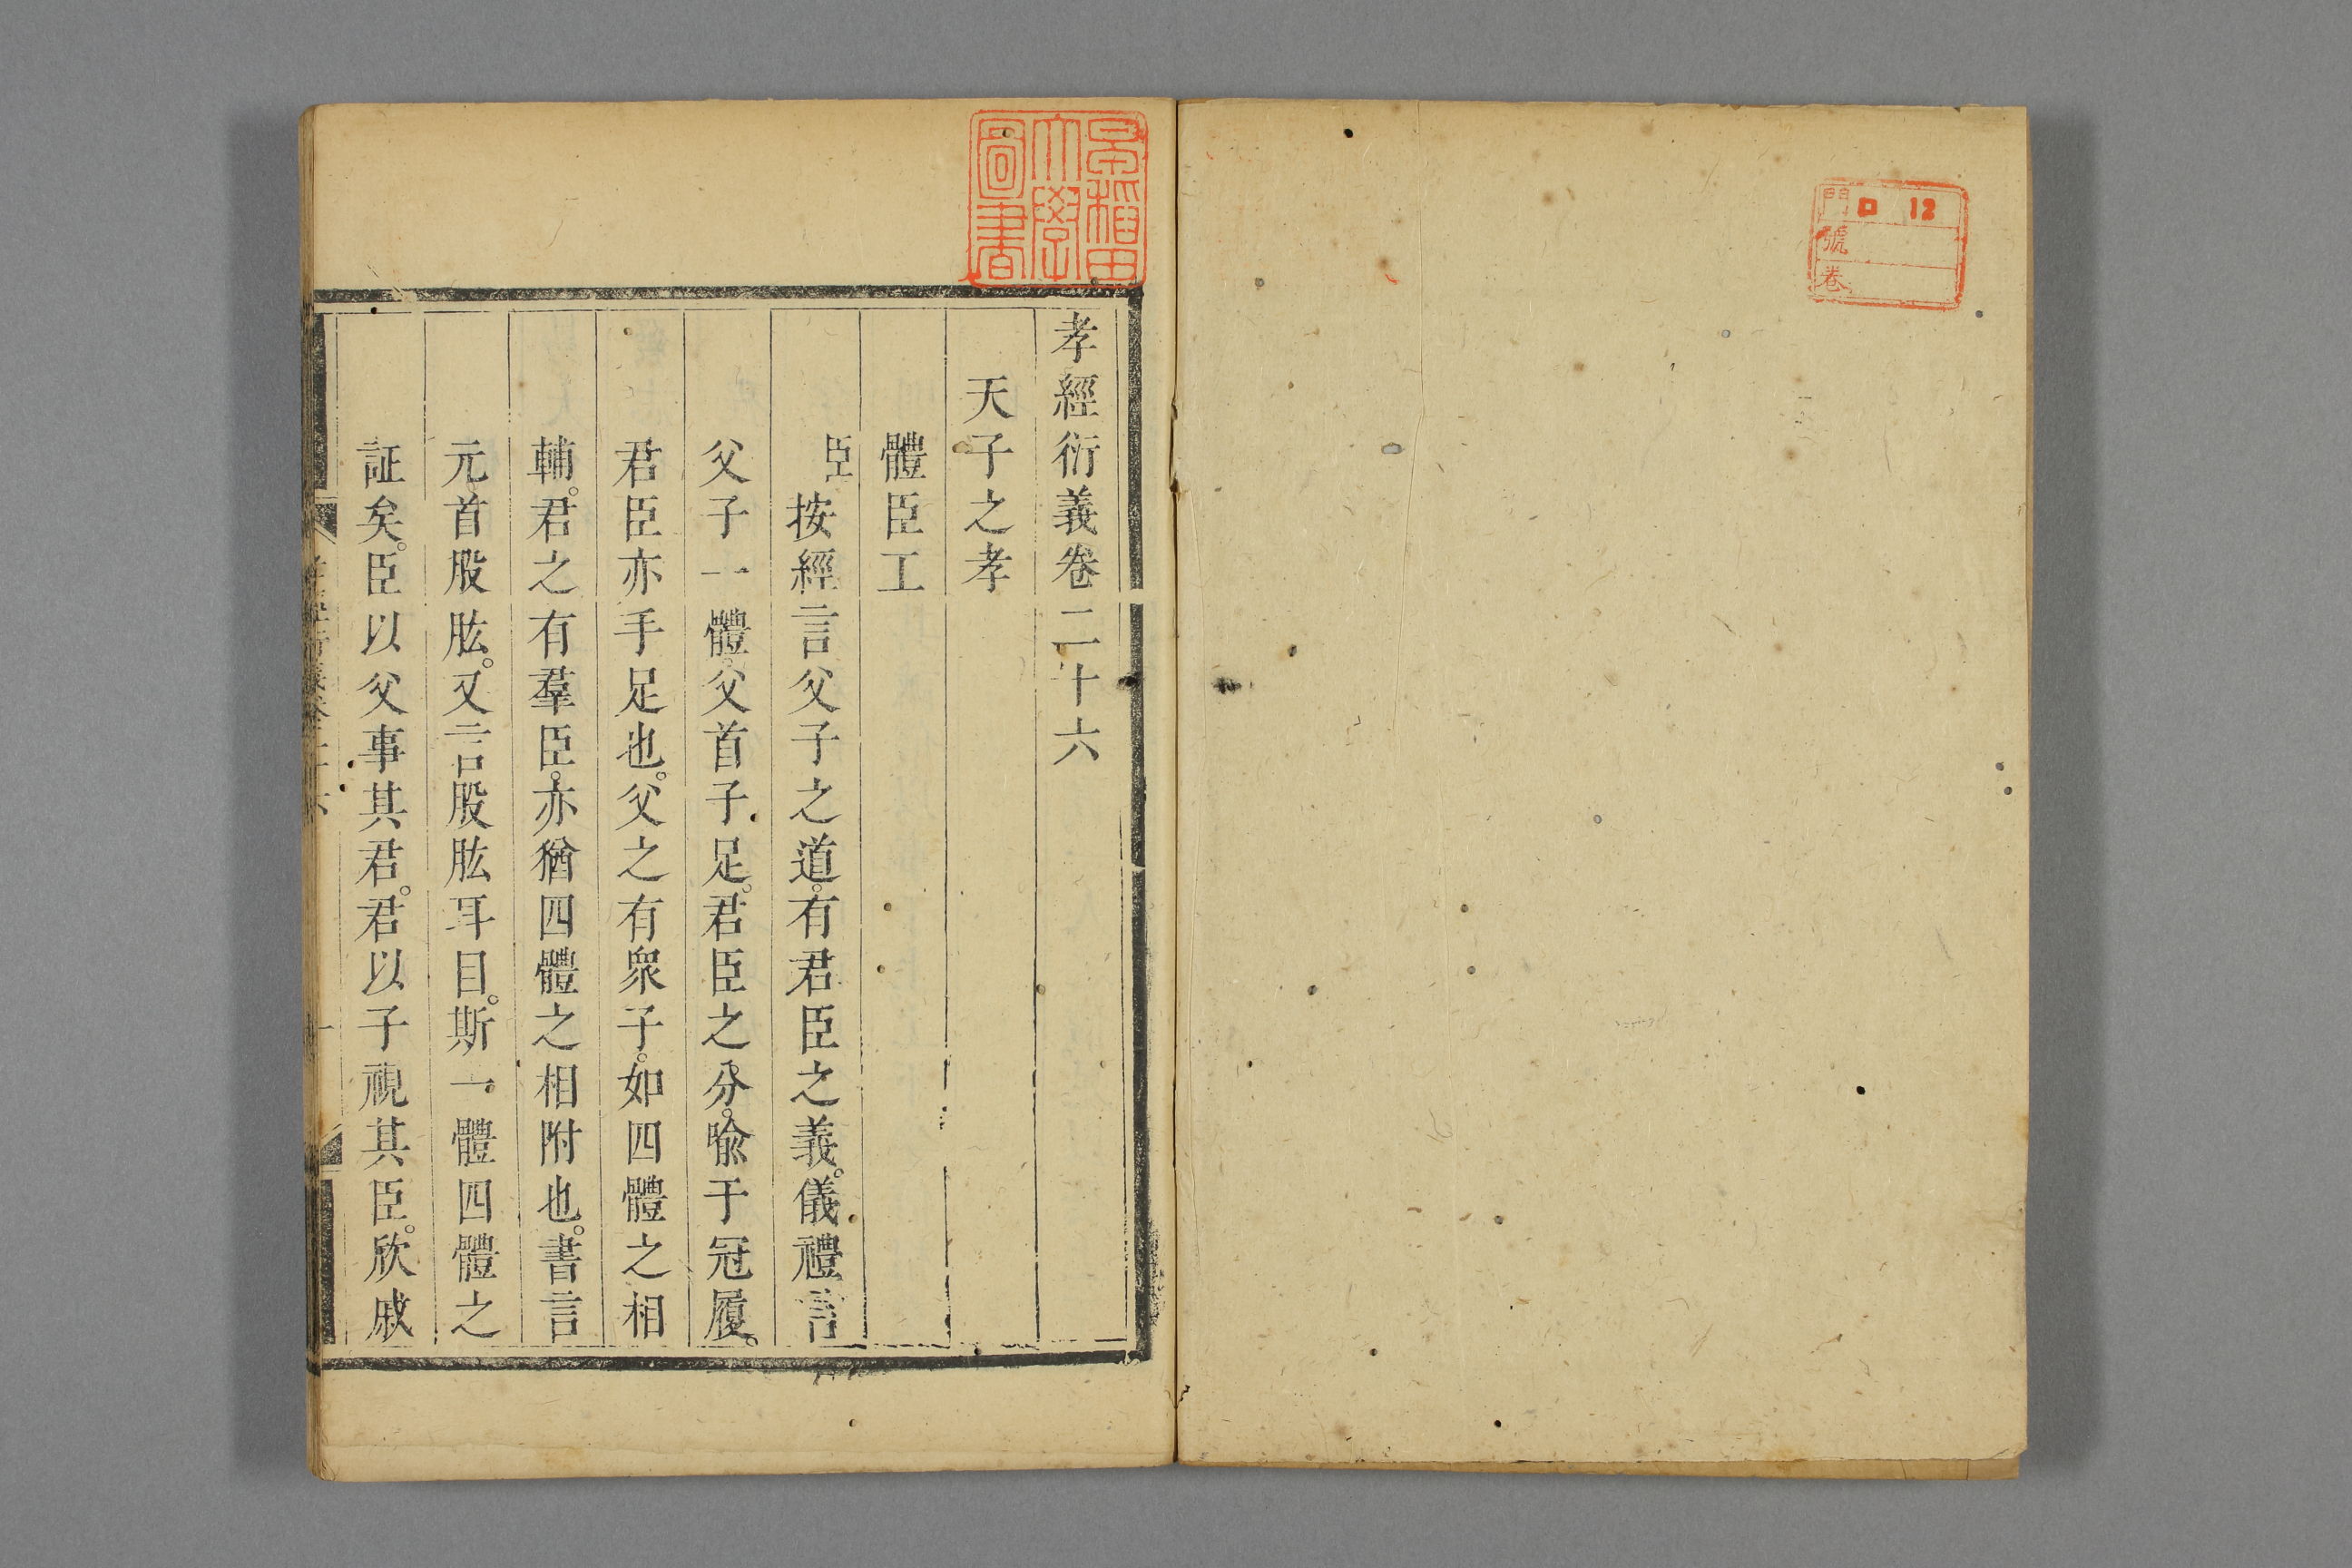 門 ロ 12
號
卷
早稲田
大學
圖書
孝經衍義卷二十六
天子之孝
體臣工
臣按經言父子之道。有君臣之義。儀禮言
父子一體。父首子足。君臣之分。喻于冠履。
君臣亦手足也。父之有衆子。如四體之相
輔。君之有羣臣。亦猶四體之相附也。書言
元首股肱。又言股肱耳目。斯一體四體之
証矣。臣以父事其君。君以子視其臣。欣戚